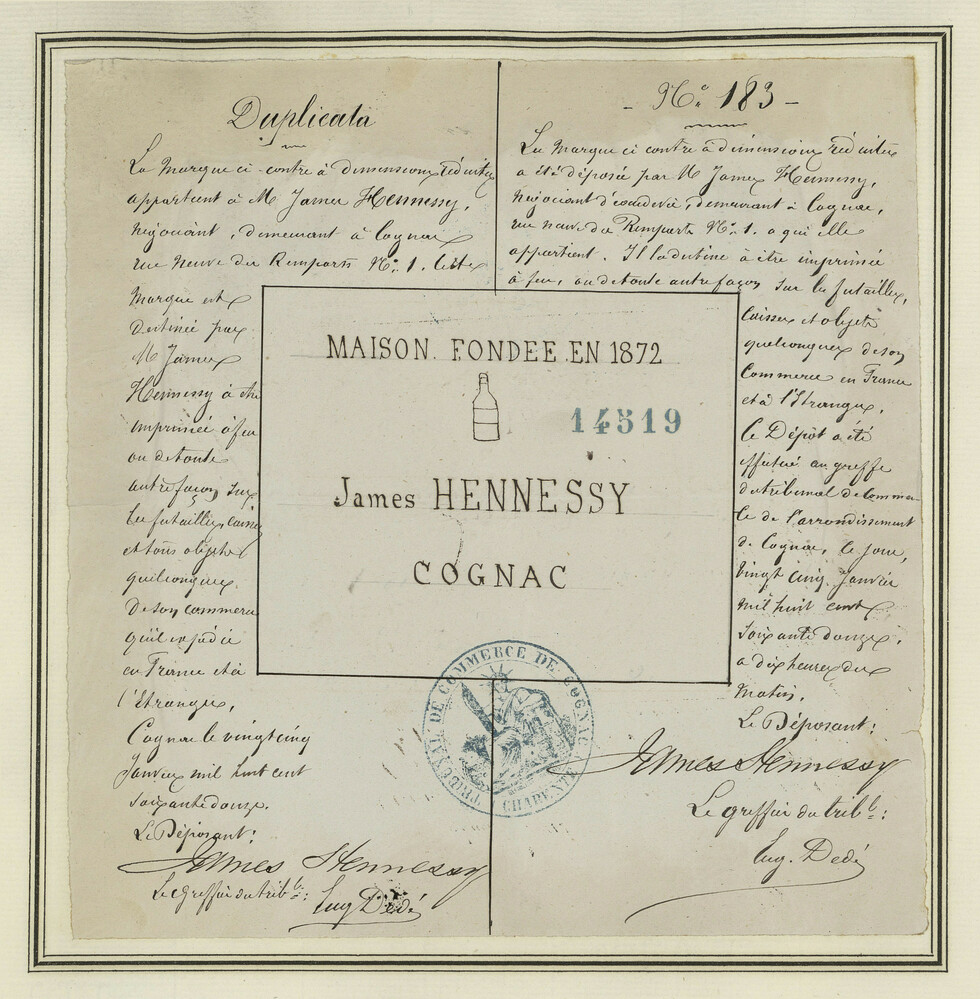 Duplicata
La Marque ci-contre à dimensions réduites
appartient à M James Hennessy,
Négociant, demeurant à Cognac
rue Neuve des Remparts Nº 1. Cette
Marque est
destinée par
M James
Hennessy à être
imprimée à feu
ou de toute
autre façon sur
les futailles, caisses
et tous objets
quelconques
de son commerce
qu'il expédie
en France et à
l'Etranger,
Cognac le vingt cinq
Janvier mil huit cent
soixante douze.
Le Déposant:
James Hennessy
Le Greffier du tribl:
Eug Dédé
- Nº 183 -
La Marque ci contre à dimensions réduites
a été déposée par M James Hennessy,
Négociant d'eaudevie, demeurant à Cognac,
rue neuve des Remparts Nº 1. a qui elle
appartient. Il la destine à être imprimée
à feu, ou de toute autre façon sur les futailles,
Caisses et objets
quelconques de son
Commerce en France
et à l'Etranger.
Ce Dépôt a été
effectué au greffe
du tribunal de Commer-
ce de l'arrondissement
de Cognac, le jour,
vingt cinq Janvier
mil huit cent
soixante douze,
a dix heures du
Matin.
Le Déposant:
James Hennessy
Le greffier du tribl:
Eug. Dédé
MAISON. FONDEE. EN 1872
14519
James HENNESSY
COGNAC
TRIBUNAL DE COMMERCE DE COGNAC
(CHARENTE)